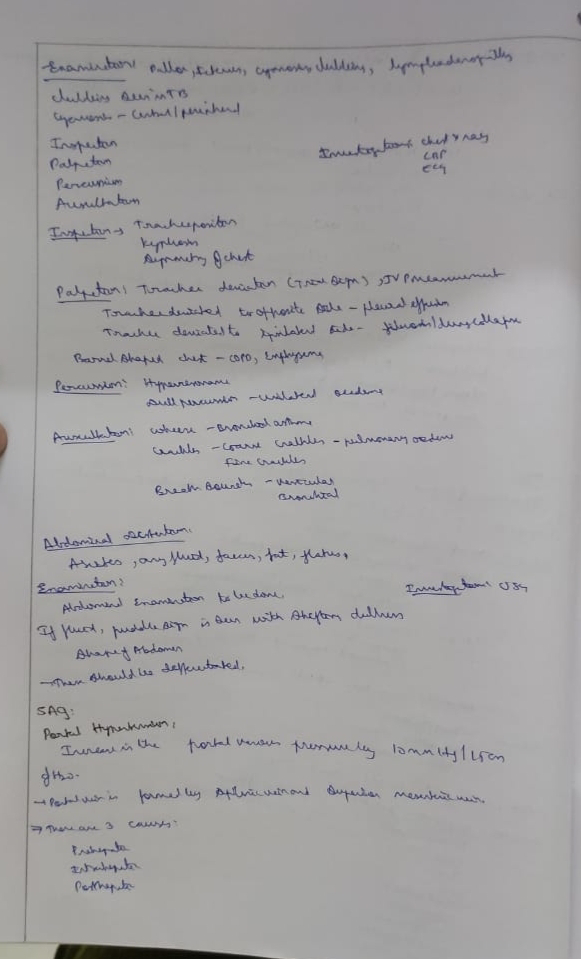 Examination: Pallor, Icterus, cyanosis, clubbing, lymphadenopathy
clubbing seen in TB
Cyanosis - Central/peripheral
Inspection
Investigations chest x ray
Palpation
CRP
Percussion
ECG
Auscultation
Inspection → Trachea position
Kyphosis
Asymmetry of chest
Palpation: Trachea deviation (Trail Sign), JVP measurement
Trachea deviated to opposite side - pleural effusion
Trachea deviated to ipsilateral side - fibrosis/lung collapse
Barrel shaped chest - COPD, Emphysema
Percussion: Hyperresonance
Dull percussion - unilateral oedema
Auscultation: wheeze - Bronchial asthma
Crackles - Coarse crackles - pulmonary oedema
Fine crackles
Breath Sounds - vesicular
Bronchial
Abdominal distention:
Ascites, any fluid, faeces, fat, flatus,
Examination:
Investigation: USG
Abdomen Examination to be done,
If fluid, puddle sign is seen with shifting dullness
Shape of Abdomen
→ Then should be differentiated.
SAQ:
Portal Hypertension:
Increase in the portal venous pressure by 10mmHg/15cm
of H2O.
→ Portal vein is formed by splenic vein and superior mesenteric vein.
⇒ There are 3 causes:
Prehepatic
Intrahepatic
Posthepatic